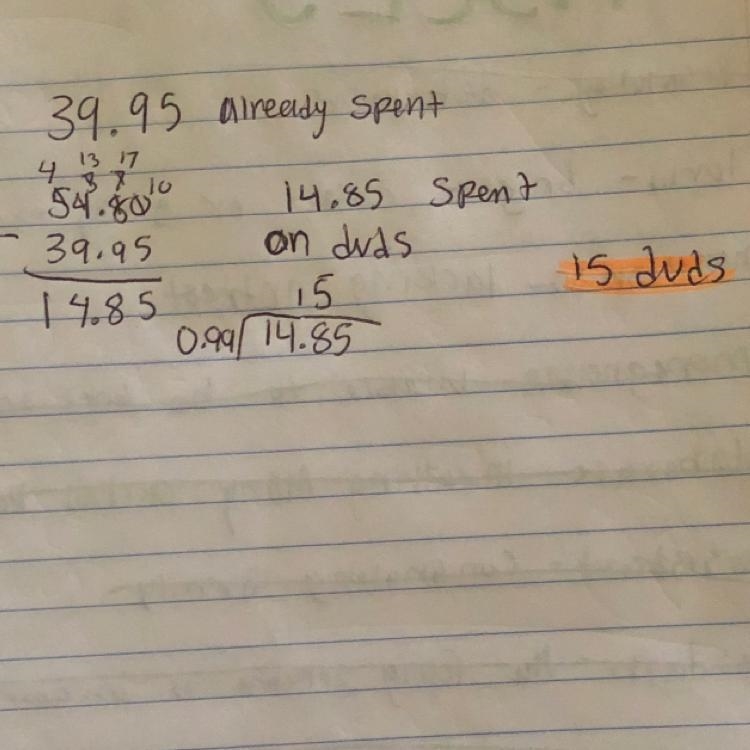 39.95 already spent
4 13 17
8 7 10
54.80 14.85 spent
- 39.95 on dvds
14.85 15 dvds
15
0.99 14.85